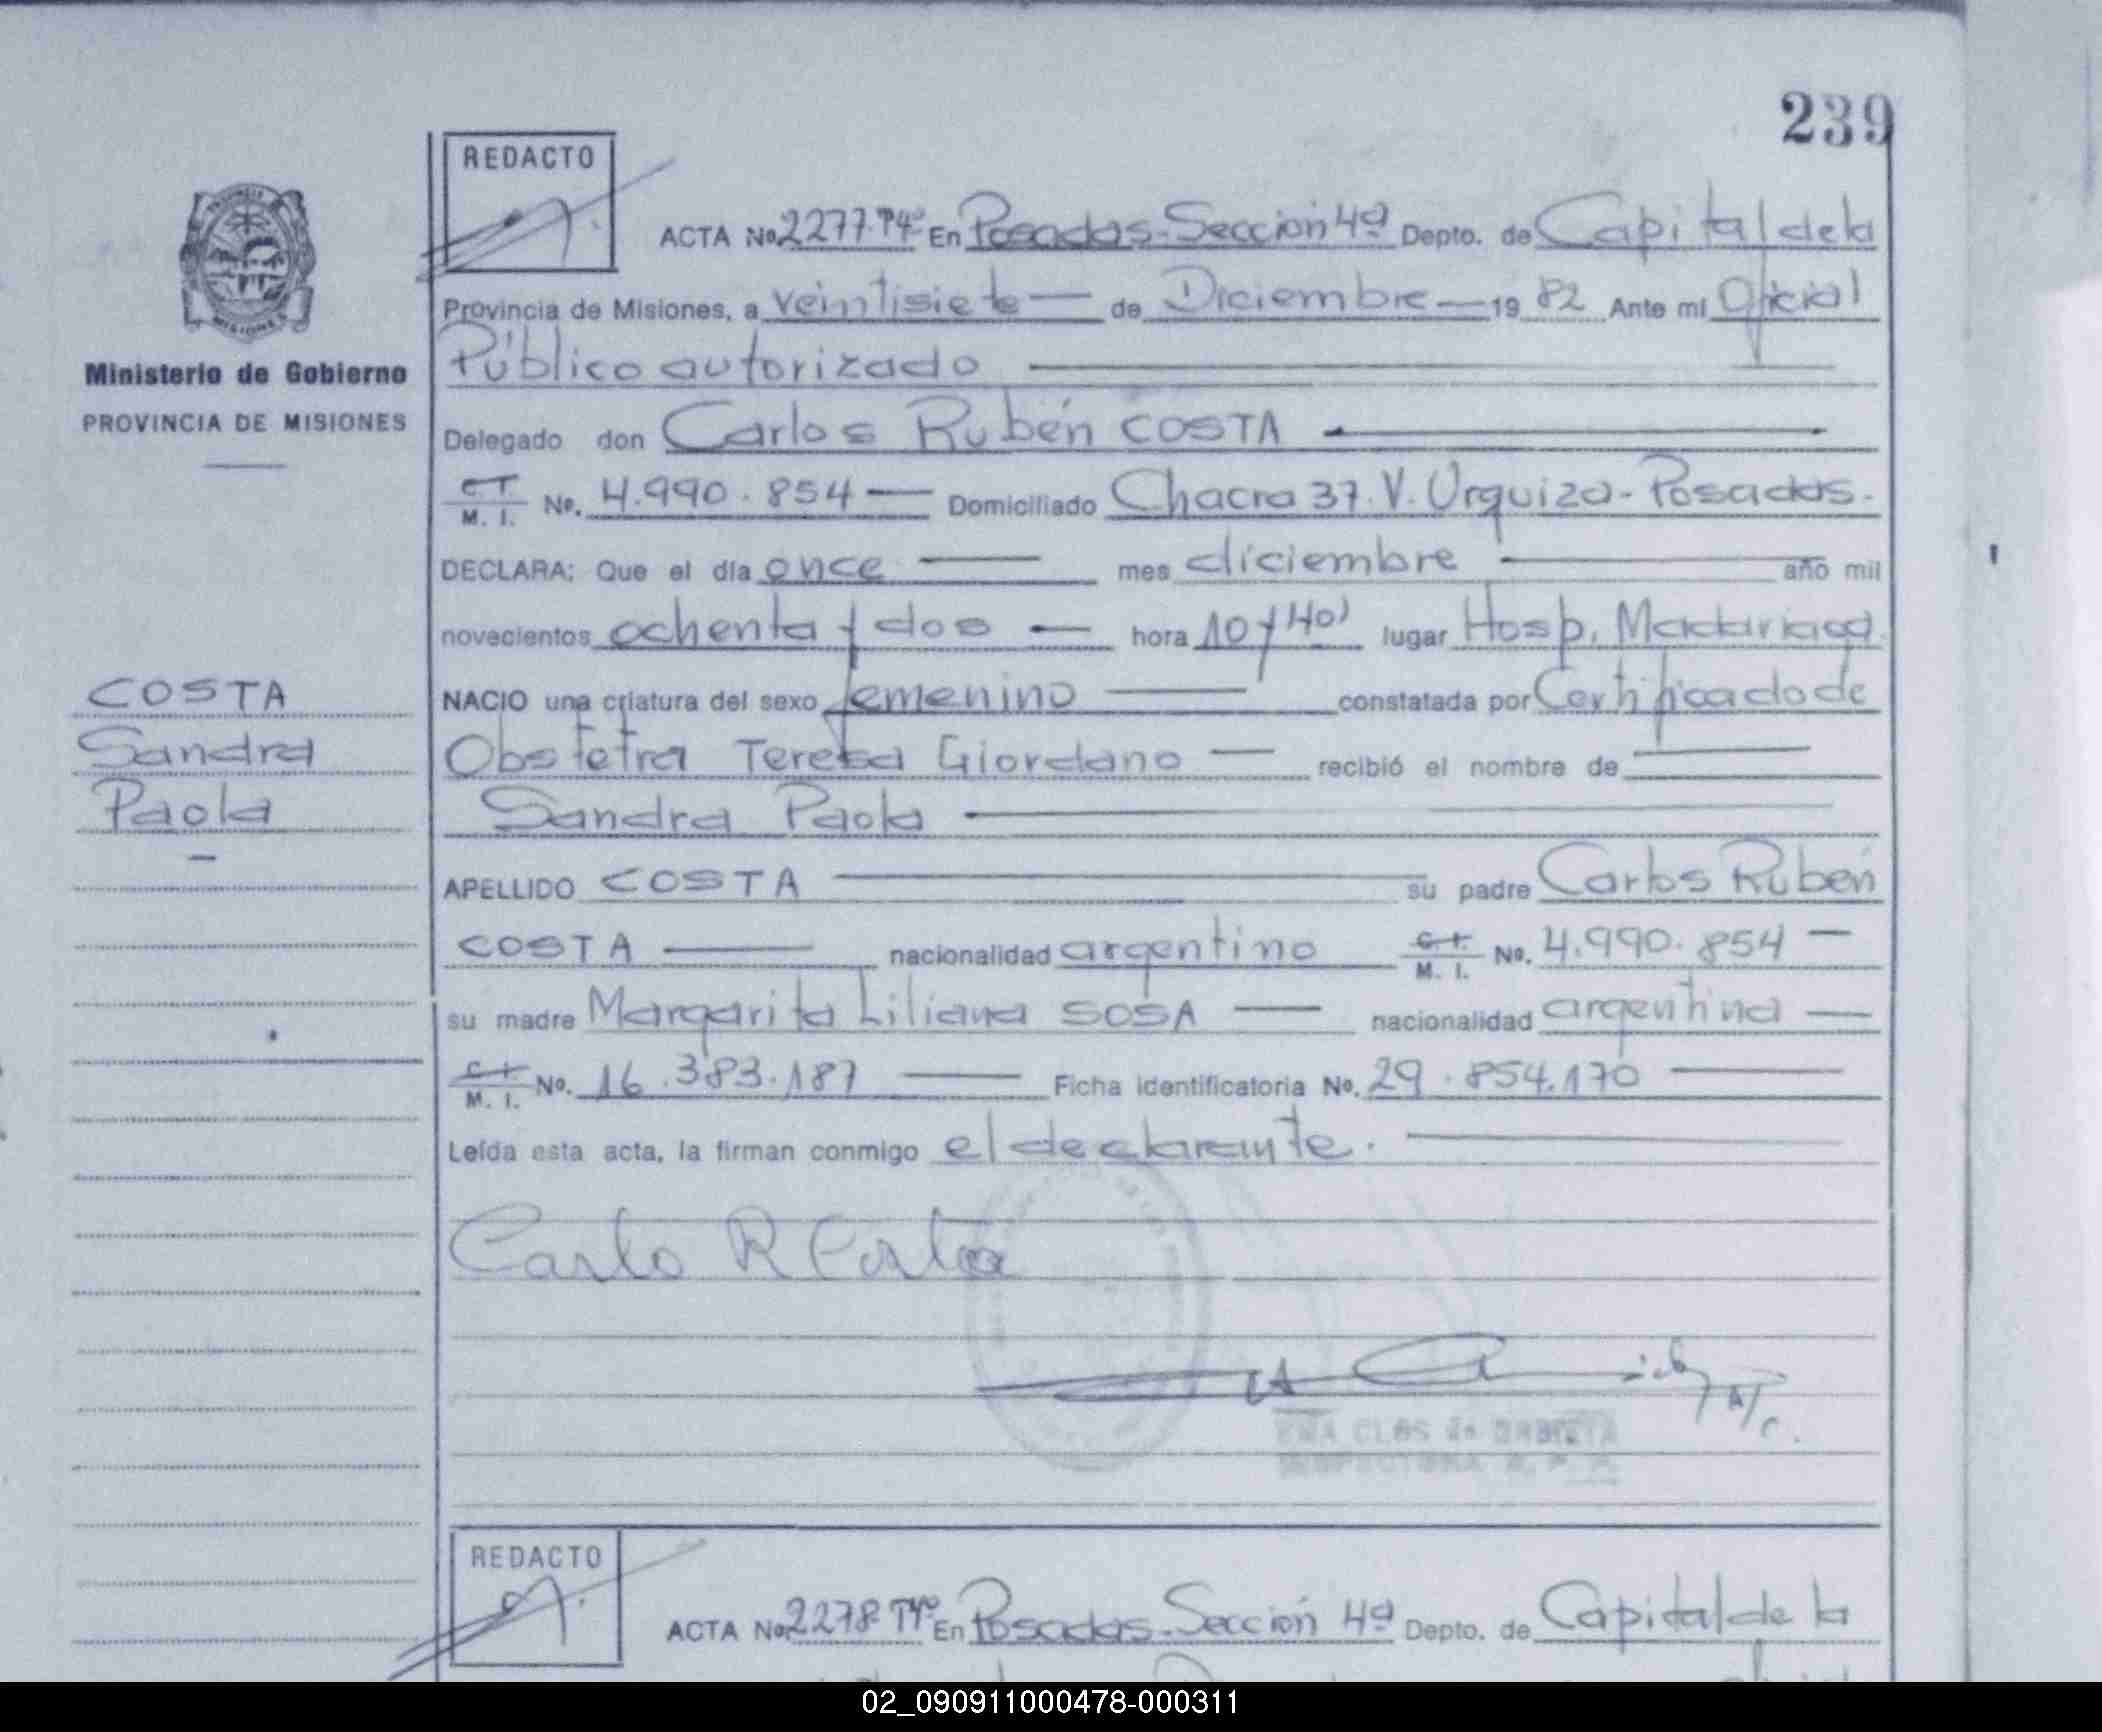 239
REDACTO
ACTA No 2277. Tº4º En Posadas-Sección 4ª Depto. de Capital de la
Provincia de Misiones, a veintisiete — de Diciembre — 19 82 Ante mi Oficial
Público autorizado
Ministerio de Gobierno
PROVINCIA DE MISIONES
Delegado don Carlos Rubén COSTA
C.I. M. I. No. 4.990.854 — Domiciliado Chacra 37. V. Urquiza - Posadas.
DECLARA: Que el día once — mes diciembre — año mil
novecientos ochenta y dos — hora 10 y 40' lugar Hosp. Madariaga
NACIO una criatura del sexo femenino — constatada por Certificado de
Obstetra Teresa Giordano — recibió el nombre de
Sandra Paola
COSTA
Sandra
Paola
APELLIDO COSTA — su padre Carlos Rubén
COSTA — nacionalidad argentino C.I. M. I. No. 4.990.854 —
su madre Margarita Liliana SOSA — nacionalidad argentina —
C.I. M. I. No. 16.383.187 — Ficha identificatoria No. 29.854.170 —
Leída esta acta, la firman conmigo el declarante.
Carlo R Costa
REDACTO
ACTA No 2278 Tº4º En Posadas-Sección 4ª Depto. de Capital de la
02_090911000478-000311